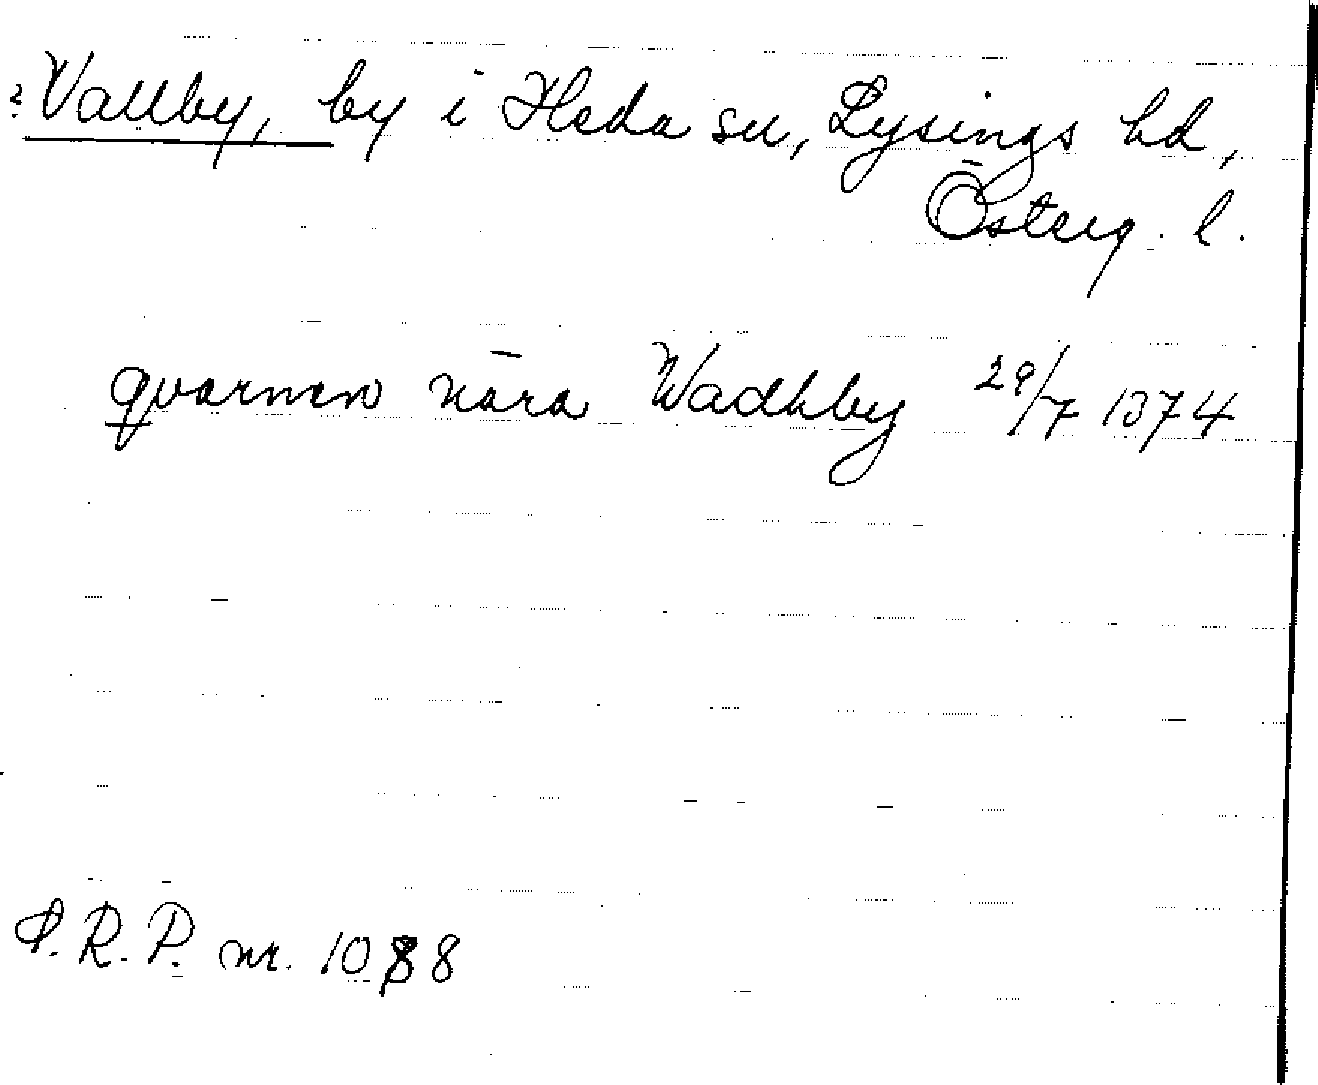 ? Vallby, by i Heda sn, Lysings hd,
Österg. l.
qvarnen nära Wadhby 29/7 1374
S.R.P. nr. 1088